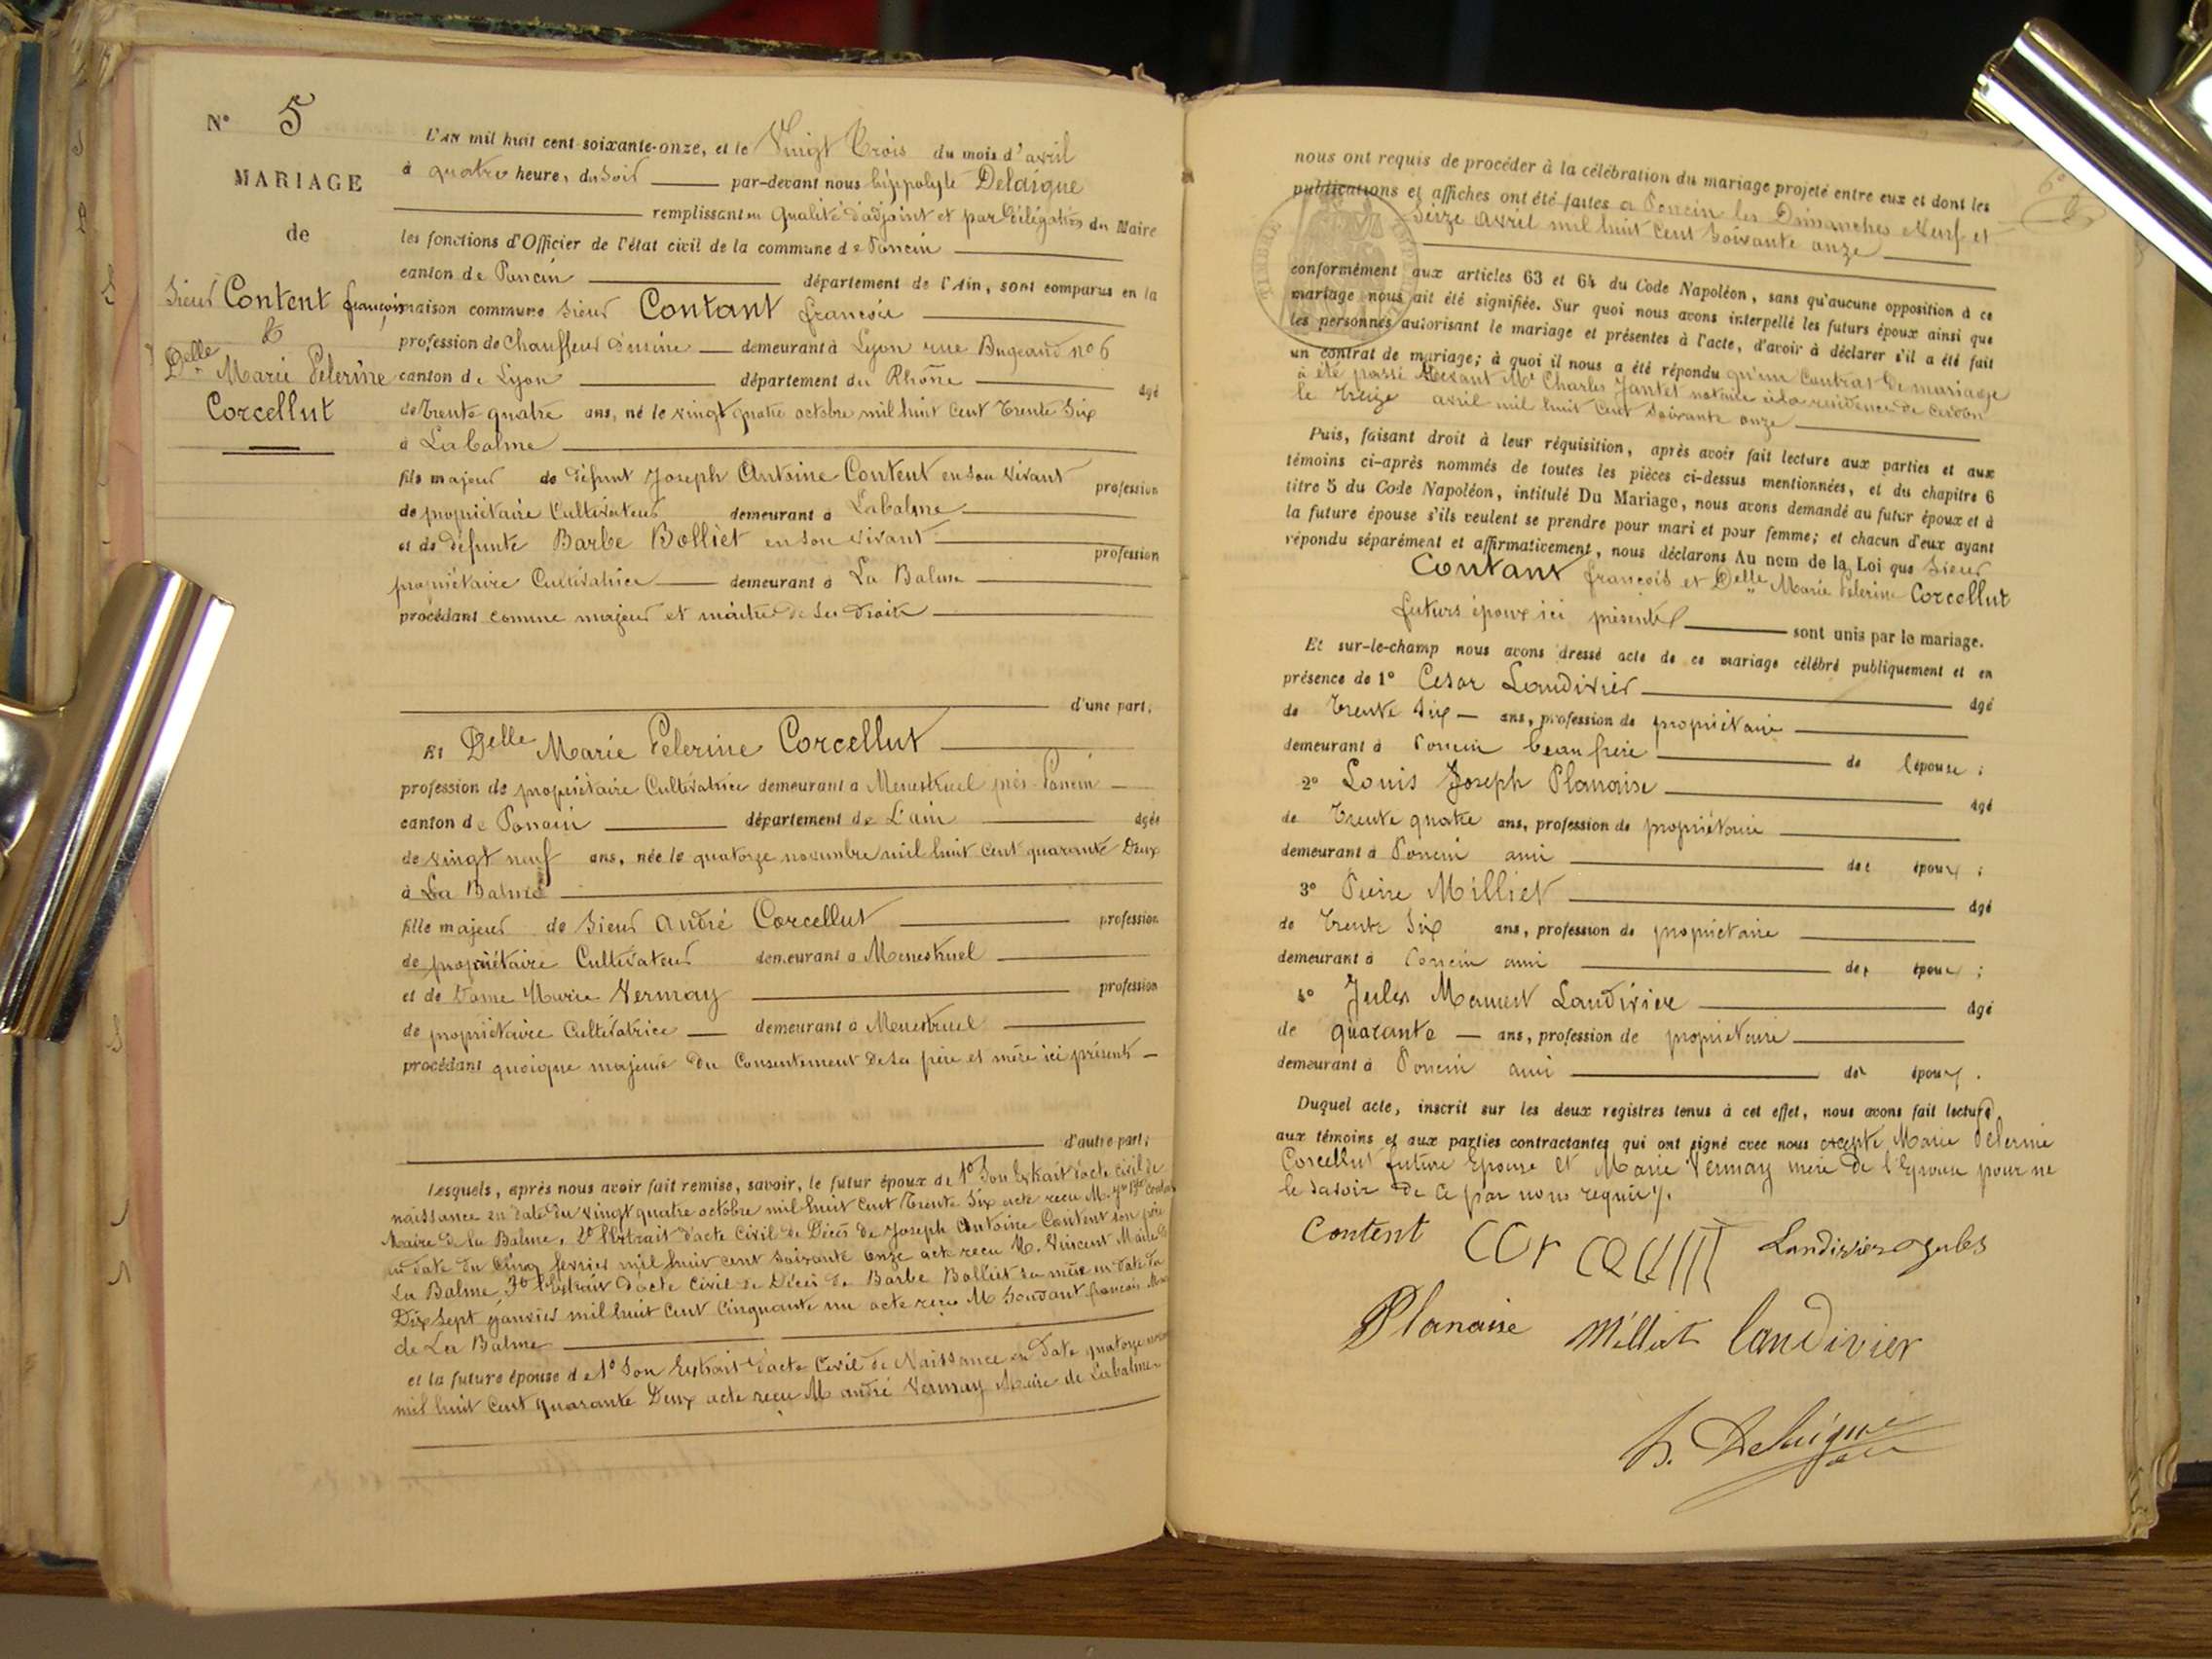 N° 5
MARIAGE
de
Sieur Content françois
&
Delle Marie Pelerine
Corcellut
L'AN mil huit cent soixante-onze, et le Vingt Trois du mois d'avril
à quatre heure, du soir par-devant nous hippolyte Delaigue
remplissant en qualité d'adjoint et par délégation du Maire
les fonctions d'Officier de l'état civil de la commune de Poncin
canton de Poncin département de l'Ain, sont comparus en la
maison commune Sieur Contant francois
profession de Chauffeur d'usine demeurant à Lyon rue Bugeaud n° 6
canton de Lyon département du Rhône âgé
de Trente quatre ans, né le vingt quatre octobre mil huit cent Trente Six
à Labalme
fils majeur de défunt Joseph Antoine Content en son vivant profession
de propriétaire Cultivateur demeurant à Labalme
et de défunte Barbe Bolliet en son vivant profession
propriétaire Cultivatrice demeurant à La Balme
procédant comme majeur et maître de ses droits
d'une part,
Et Delle Marie Pelerine Corcellut
profession de propriétaire Cultivatrice demeurant à Menestruel près Poncin
canton de Poncin département de L'ain âgée
de vingt neuf ans, née le quatorze novembre mil huit cent quarante Deux
à La Balme
fille majeur de Sieur André Corcellut profession
de propriétaire Cultivateur demeurant à Menestruel
et de Dame Marie Vermay profession
de propriétaire Cultivatrice demeurant à Menestruel
procédant quoique majeure du Consentement de ses père et mère ici présents
d'autre part;
Lesquels, après nous avoir fait remise, savoir, le futur époux de 1° Son Extrait d'acte civil de
naissance en date du vingt quatre octobre mil huit cent Trente Six acte recu M.
Maire de La Balme, 2° l'Extrait d'acte Civil de Décès de Joseph Antoine Content son père
en date du Cinq fevrier mil huit cent soixante onze acte recu M. Vincent Maire de
La Balme, 3° l'Extrait d'acte Civil de Décès de Barbe Bolliet sa mère en date du
Dix Sept janvier mil huit cent Cinquante un acte recu M francois
de La Balme
et la future épouse de 1° Son Extrait d'acte Civil de Naissance en Date quatorze
mil huit cent quarante Deux acte recu M andré Vermay Maire de Labalme
nous ont requis de procéder à la célébration du mariage projeté entre eux et dont les
publications et affiches ont été faites a Poncin les Dimanches Neuf et
Seize Avril mil huit cent soixante onze
conformément aux articles 63 et 64 du Code Napoléon, sans qu'aucune opposition à ce
mariage nous ait été signifiée. Sur quoi nous avons interpellé les futurs époux ainsi que
les personnes autorisant le mariage et présentes à l'acte, d'avoir à déclarer s'il a été fait
un contrat de mariage; à quoi il nous a été répondu qu'un Contrat de mariage
à été passé Devant Me Charles Jantet notaire à la résidence de Cerdon
le treize avril mil huit Cent Soixante onze
Puis, faisant droit à leur réquisition, après avoir fait lecture aux parties et aux
témoins ci-après nommés de toutes les pièces ci-dessus mentionnées, et du chapitre 6
titre 5 du Code Napoléon, intitulé Du Mariage, nous avons demandé au futur époux et à
la future épouse s'ils veulent se prendre pour mari et pour femme; et chacun d'eux ayant
répondu séparément et affirmativement, nous déclarons Au nom de la Loi que Sieur
Contant francois et Delle Marie Pelerine Corcellut
futurs époux ici présents sont unis par le mariage.
Et sur-le-champ nous avons dressé acte de ce mariage célébré publiquement et en
présence de 1° Cesar Landivier âgé
de Trente Six ans, profession de propriétaire
demeurant à Poncin beau frère de l'épouse;
2° Louis Joseph Planaise âgé
de Trente quatre ans, profession de propriétaire
demeurant à Poncin ami des époux;
3° Pierre Milliet âgé
de Trente Six ans, profession de propriétaire
demeurant à Poncin ami des époux;
4° Jules Landivier âgé
de quarante ans, profession de propriétaire
demeurant à Poncin ami des époux.
Duquel acte, inscrit sur les deux registres tenus à cet effet, nous avons fait lecture
aux témoins et aux parties contractantes qui ont signé avec nous excepté Marie Pelerine
Corcellut future Epouse et Marie Vermay mère de l'Epouse pour ne
le savoir de ce par nous requis.
Content Landivier jules
Planaise Milliet landivier
h. Delaigue